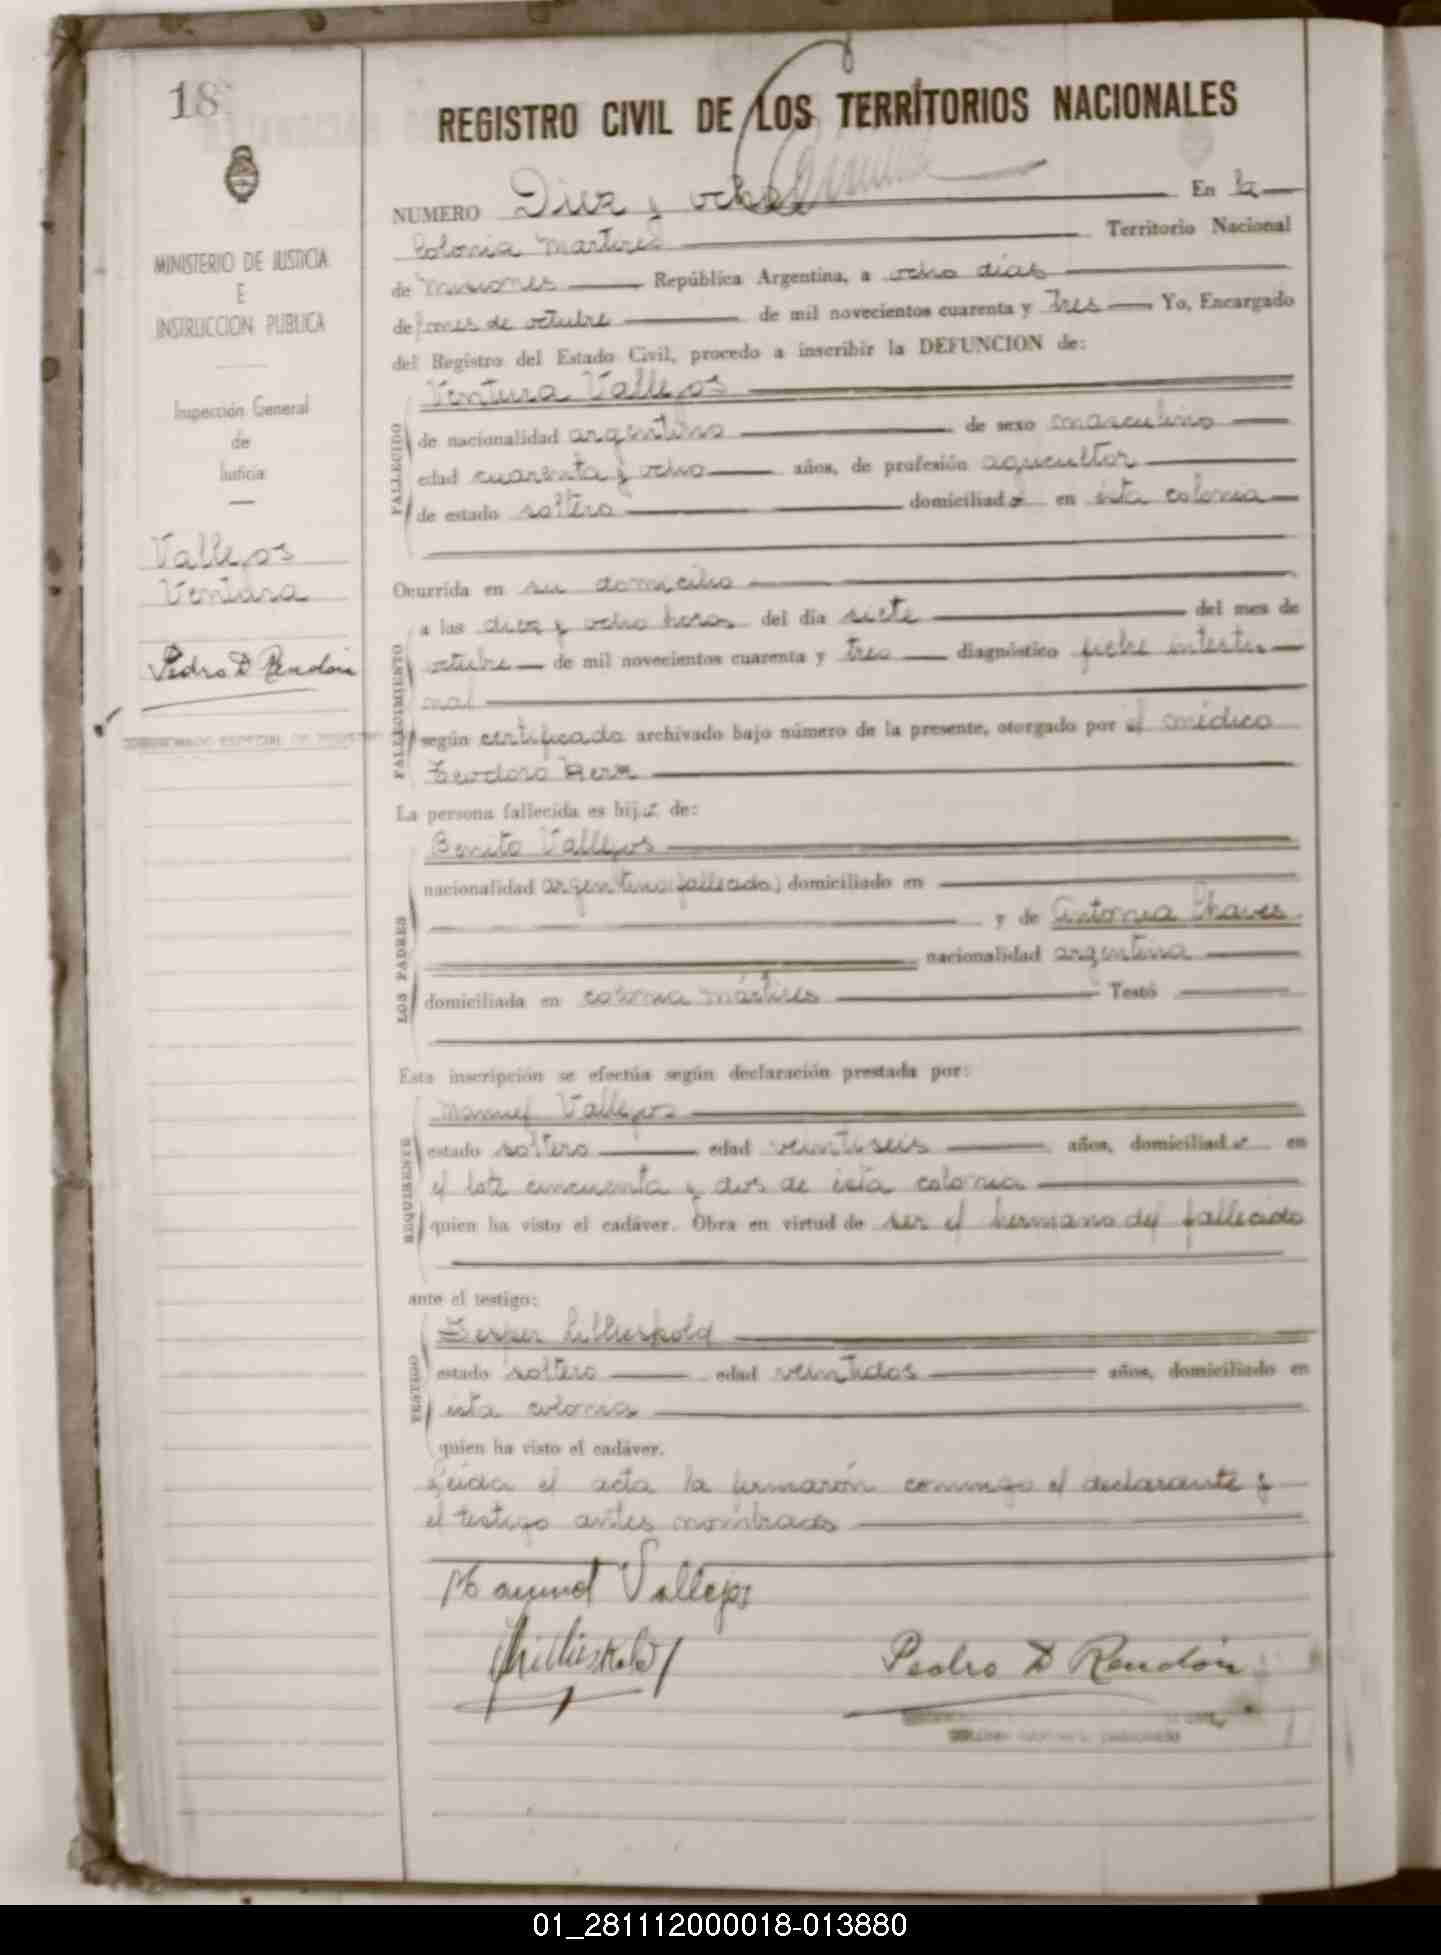 18
REGISTRO CIVIL DE LOS TERRITORIOS NACIONALES
NUMERO Diez y ocho En la
Colonia Martires Territorio Nacional
de Misiones República Argentina, a ocho días
del mes de octubre de mil novecientos cuarenta y tres Yo, Encargado
del Registro del Estado Civil, procedo a inscribir la DEFUNCION de:
MINISTERIO DE JUSTICIA
E
INSTRUCCION PUBLICA
Inspección General
de
Justicia
Vallejos
Ventura
Pedro D Rendón
FALLECIDO
Ventura Vallejos
de nacionalidad argentino de sexo masculino
edad cuarenta y ocho años, de profesión agricultor
de estado soltero domiciliado en esta colonia
Ocurrida en su domicilio
FALLECIMIENTO
a las diez y ocho horas del día siete del mes de
octubre de mil novecientos cuarenta y tres diagnóstico fiebre intesti
nal
según certificado archivado bajo número de la presente, otorgado por el médico
Teodoro
La persona fallecida es hijo de:
LOS PADRES
Benito Vallejos
nacionalidad argentino (fallecido) domiciliado en
y de Antonia Chaves
nacionalidad argentina
domiciliada en colonia mártires Testó
Esta inscripción se efectúa según declaración prestada por:
REQUIRENTE
Manuel Vallejos
estado soltero edad veintiseis años, domiciliado en
el lote cincuenta y dos de esta colonia
quien ha visto el cadáver. Obra en virtud de ser el hermano del fallecido
ante el testigo:
TESTIGO
Lillieskold
estado soltero edad veintidos años, domiciliado en
esta colonia
quien ha visto el cadáver.
Leida el acta la firmarón conmigo el declarante y
el testigo antes nombrado
Manuel Vallejos
Lillieskold
Pedro D Rendón
01_281112000018-013880